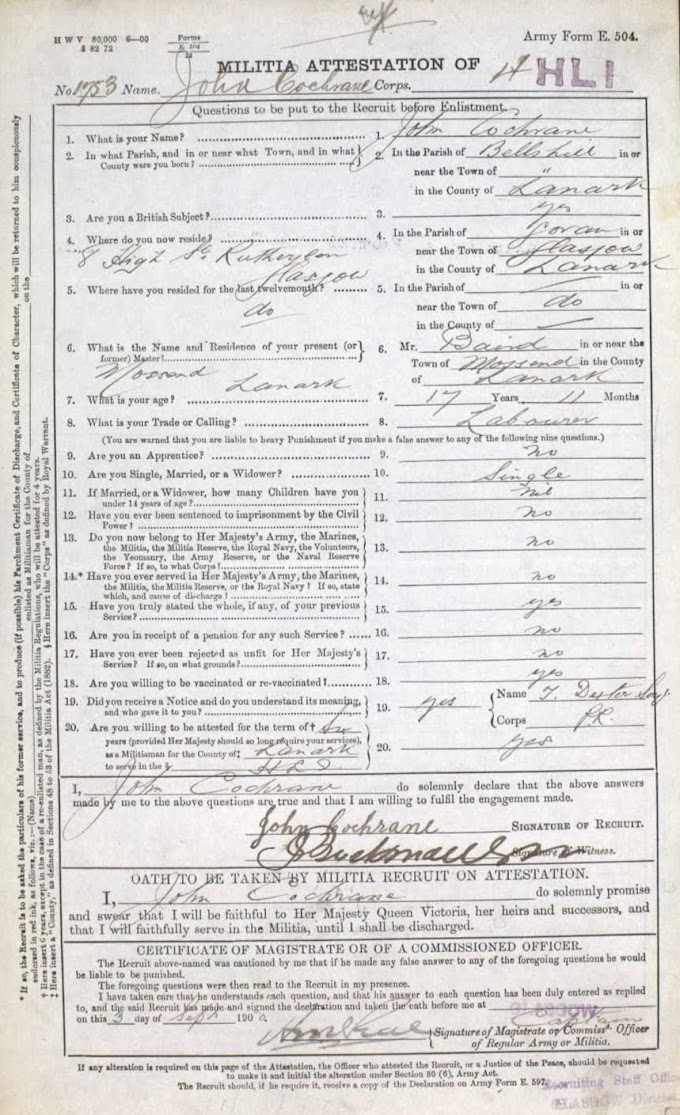 H W V 80,000 6—00
§ 82 72
Forms
E. 504
Army Form E. 504.
MILITIA ATTESTATION OF
No. 1753 Name. John Cochrane Corps. 4 HLI
Questions to be put to the Recruit before Enlistment.
1. What is your Name? 1. John Cochrane
2. In what Parish, and in or near what Town, and in what County were you born? 2. In the Parish of Bellshill in or
near the Town of "
in the County of Lanark
3. Are you a British Subject? 3. yes
4. Where do you now reside? 4. In the Parish of Govan in or
8 High St. Rutherglen near the Town of Glasgow
Glasgow in the County of Lanark
5. Where have you resided for the last twelvemonth? 5. In the Parish of in or
do near the Town of do
in the County of
6. What is the Name and Residence of your present (or former) Master? 6. Mr. Baird in or near the
Mossend Town of Mossend in the County
Lanark of Lanark
7. What is your age? 7. 17 Years 11 Months
8. What is your Trade or Calling? 8. Labourer
(You are warned that you are liable to heavy Punishment if you make a false answer to any of the following nine questions.)
9. Are you an Apprentice? 9. no
10. Are you Single, Married, or a Widower? 10. Single
11. If Married, or a Widower, how many Children have you under 14 years of age? 11. Nil
12. Have you ever been sentenced to imprisonment by the Civil Power? 12. No
13. Do you now belong to Her Majesty's Army, the Marines, the Militia, the Militia Reserve, the Royal Navy, the Volunteers, the Yeomanry, the Army Reserve, or the Naval Reserve Force? If so, to what Corps? 13. no
14.* Have you ever served in Her Majesty's Army, the Marines, the Militia, the Militia Reserve, or the Royal Navy? If so, state which, and cause of discharge? 14. no
15. Have you truly stated the whole, if any, of your previous Service? 15. yes
16. Are you in receipt of a pension for any such Service? 16. no
17. Have you ever been rejected as unfit for Her Majesty's Service? If so, on what grounds? 17. no
18. Are you willing to be vaccinated or re-vaccinated? 18. yes
19. Did you receive a Notice and do you understand its meaning, and who gave it to you? 19. yes Name T. Dexter
Corps
20. Are you willing to be attested for the term of † Six
years (provided Her Majesty should so long require your services), 20. yes
as a Militiaman for the County of ‡ Lanark
to serve in the § HLI
I, John Cochrane do solemnly declare that the above answers
made by me to the above questions are true and that I am willing to fulfil the engagement made.
John Cochrane SIGNATURE OF RECRUIT.
Signature of Witness.
OATH TO BE TAKEN BY MILITIA RECRUIT ON ATTESTATION.
I, John Cochrane do solemnly promise
and swear that I will be faithful to Her Majesty Queen Victoria, her heirs and successors, and
that I will faithfully serve in the Militia, until I shall be discharged.
CERTIFICATE OF MAGISTRATE OR OF A COMMISSIONED OFFICER.
The Recruit above-named was cautioned by me that if he made any false answer to any of the foregoing questions he would
be liable to be punished.
The foregoing questions were then read to the Recruit in my presence.
I have taken care that he understands each question, and that his answer to each question has been duly entered as replied
to, and the said Recruit has made and signed the declaration and taken the oath before me at GLASGOW
on this 3 day of Sept 190
Signature of Magistrate or Commissd. Officer
of Regular Army or Militia.
If any alteration is required on this page of the Attestation, the Officer who attested the Recruit, or a Justice of the Peace, should be requested
to make it and initial the alteration under Section 80 (6), Army Act.
The Recruit should, if he require it, receive a copy of the Declaration on Army Form E. 597.
Recruiting Staff Officer
GLASGOW District
* If so, the Recruit is to be asked the particulars of his former service, and to produce (if possible) his Parchment Certificate of Discharge, and Certificate of Character, which will be returned to him conspicuously
endorsed in red ink, as follows, viz.:—(Name) enlisted as Militiaman for the County of on the
† Here insert 6 years, except in the case of a re-enlisted man, as defined by the Militia Regulations, who will be attested for 4 years.
‡ Here insert a "County," as defined in Sections 48 to 53 of the Militia Act (1882). § Here insert the "Corps" as defined by Royal Warrant.